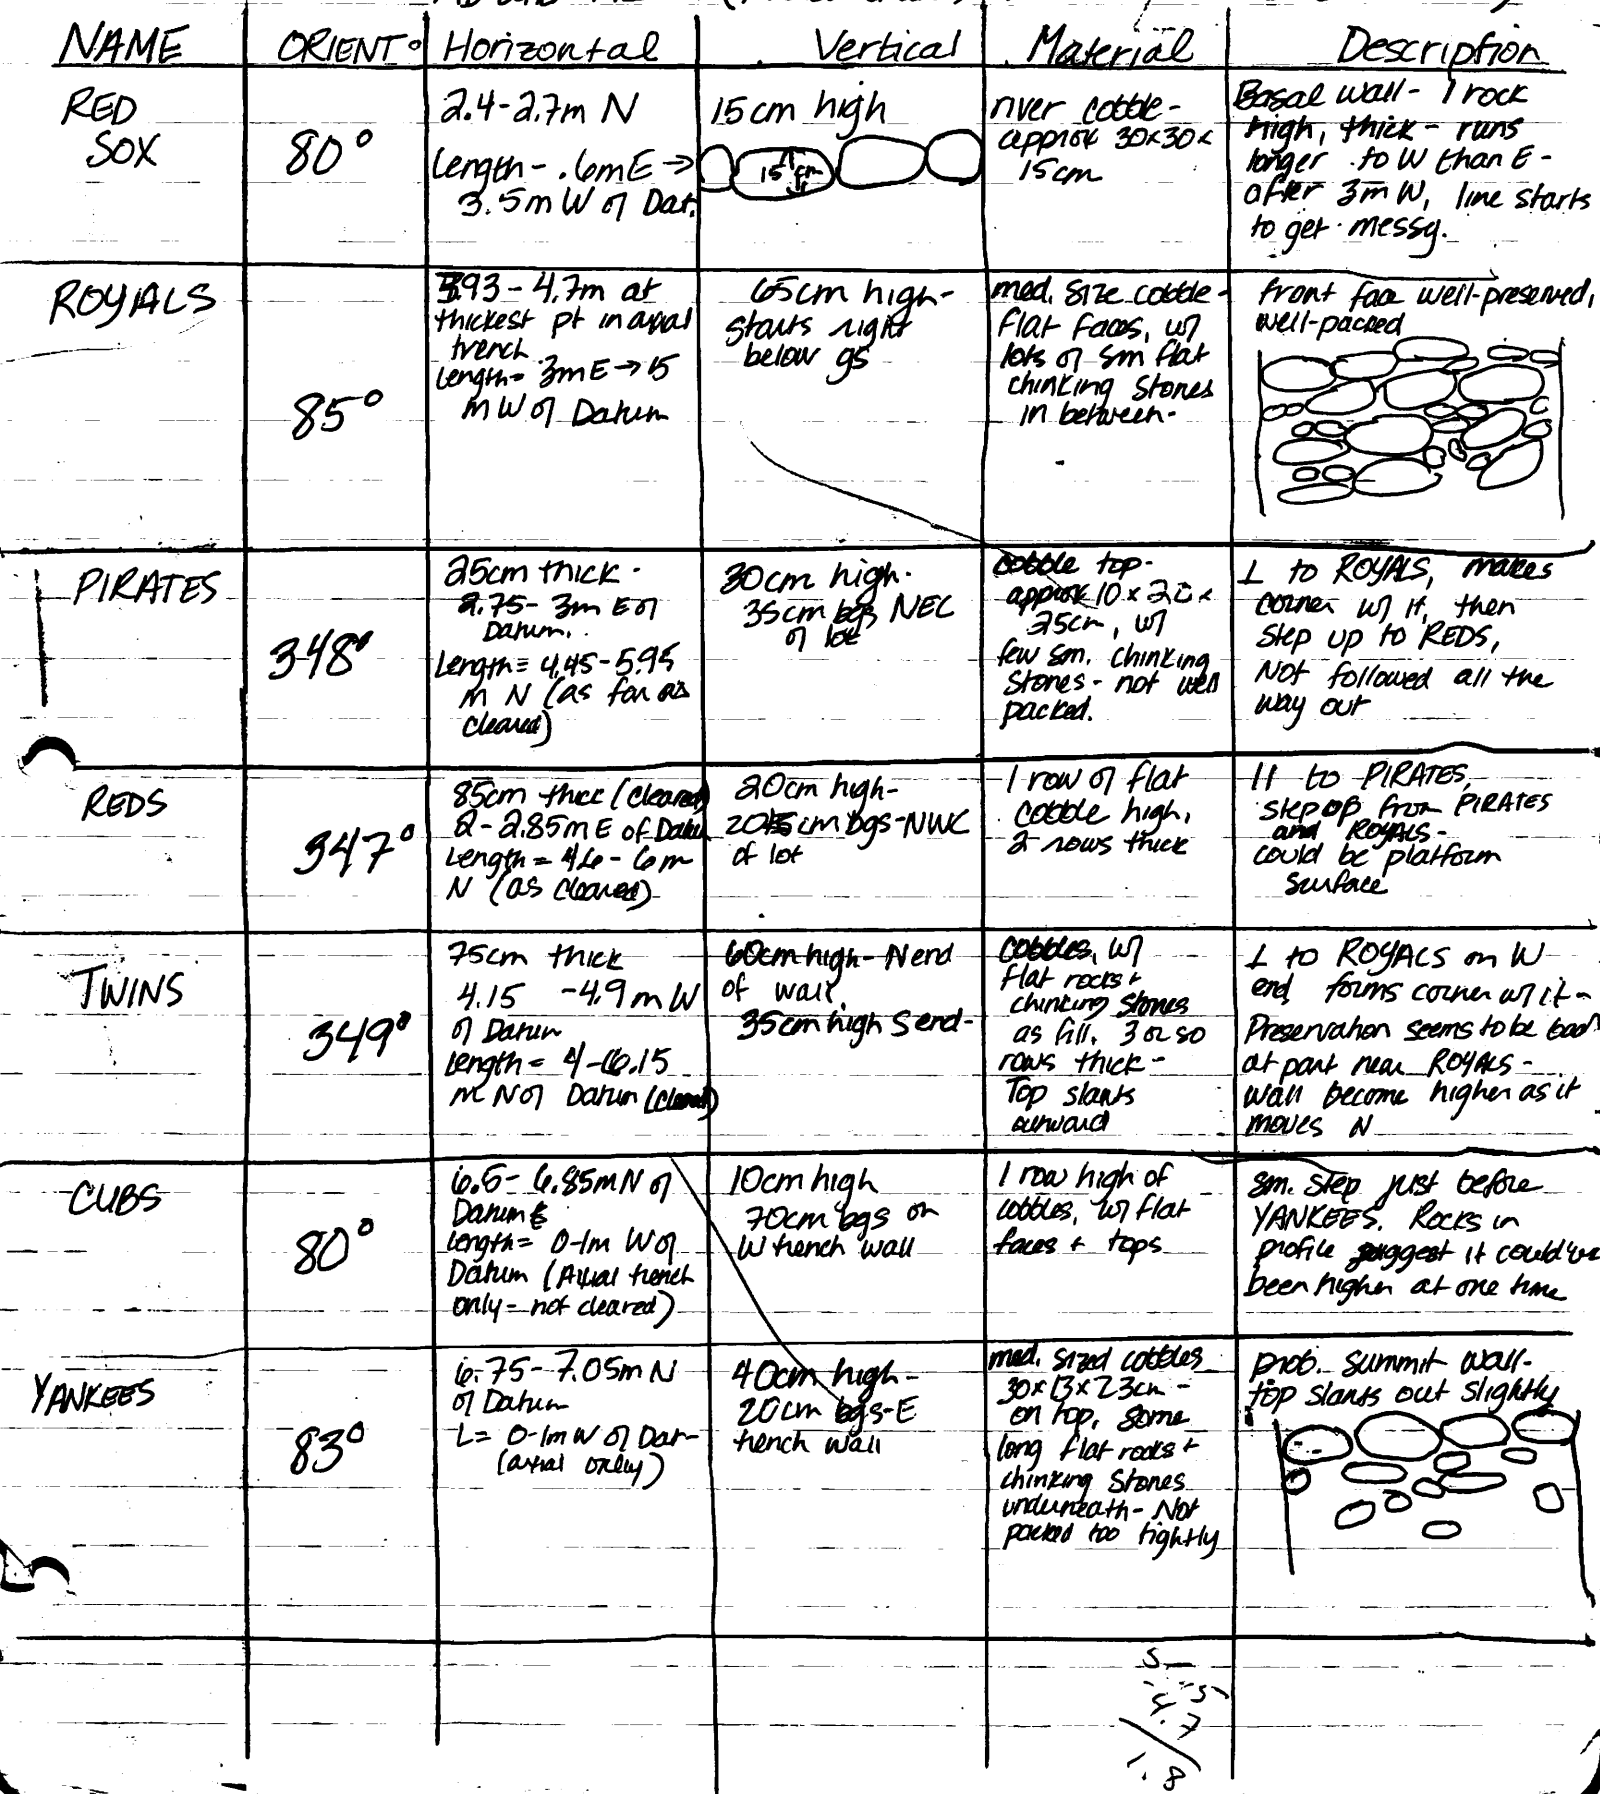 NAME ORIENT° Horizontal Vertical Material Description
RED
SOX
80°
2.4-2.7m N
Length- .6m E →
3.5m W of Dat.
15cm high
15 cm
river cobble-
approx 30x30x
15cm
Basal wall- 1 rock
high, thick- runs
longer to W than E-
after 3m W, line starts
to get messy.
ROYALS
85°
3.93 - 4.7m at
thickest pt in axial
trench
Length= 3m E → 15
m W of Datum
65cm high-
starts right
below gs
med. size cobble-
flat faces, w/
lots of sm flat
chinking stones
in between-
front face well-preserved,
well-packed
PIRATES
348°
25cm thick-
2.75- 3m E of
Datum.
Length= 4.45-5.95
m N (as far as
cleared)
30cm high-
35cm bgs NEC
of lot
cobble top-
approx 10 x 20 x
25cm, w/
few sm. chinking
stones- not well
packed.
⊥ to ROYALS, makes
corner w/ it, then
step up to REDS,
Not followed all the
way out
REDS
347°
85cm thick (cleared)
2-2.85m E of Datum
Length= 4.6-6m
N (as cleared)
20cm high-
cm bgs-NWC
of lot
1 row of flat
cobble high,
2 rows thick
|| to PIRATES,
step up from PIRATES
and ROYALS-
could be platform
surface
TWINS
349°
75cm thick
4.15 -4.9m W
of Datum
Length= 4-6.15
m N of Datum (cleared)
60cm high- N end
of wall.
35cm high S end-
cobbles, w/
flat rocks +
chinking stones
as fill. 3 or so
rows thick-
Top slants
outward
⊥ to ROYALS on W
end, forms corner w/ it-
Preservation seems to be bad
at part near ROYALS-
wall become higher as it
moves N
CUBS
80°
6.5- 6.85m N of
Datum
Length= 0-1m W of
Datum (Axial trench
only- not cleared)
10cm high
70cm bgs on
W trench wall
1 row high of
cobbles, w/ flat
faces + tops
sm. step just before
YANKEES. Rocks in
profile suggest it could've
been higher at one time
YANKEES
83°
6.75-7.05m N
of Datum
L= 0-1m W of Dat-
(axial only)
40cm high-
20cm bgs-E
trench wall
med. sized cobbles
30x13x23cm-
on top, some
long flat rocks +
chinking stones
underneath- Not
packed too tightly
prob. summit wall-
top slants out slightly
5
4.7
1.8